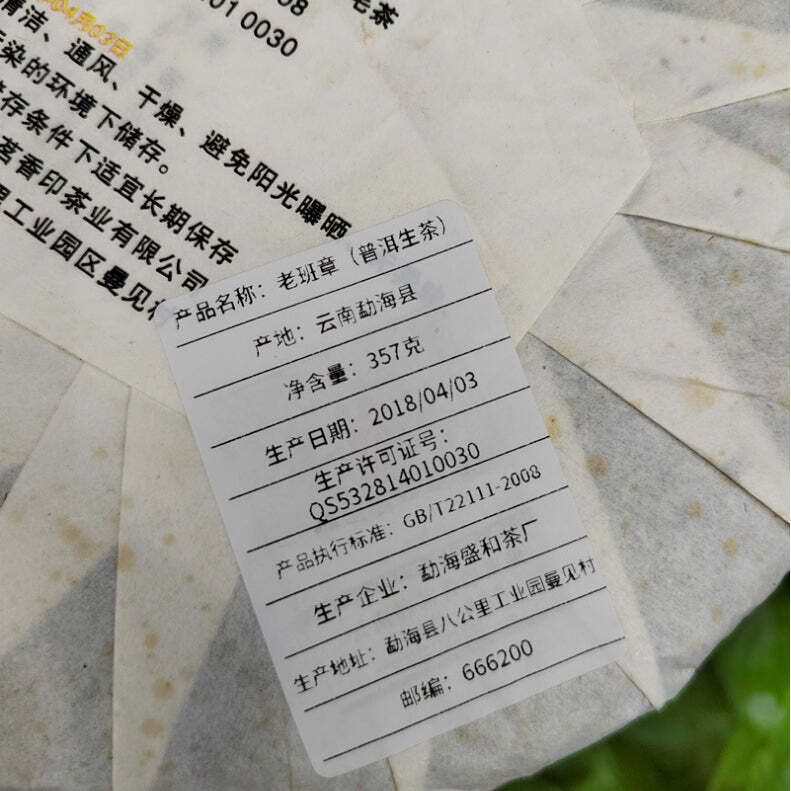 毛茶
08
01 0030
04月03日
清洁、通风、干燥、避免阳光曝晒
污染的环境下储存。
存条件下适宜长期保存
茗香印茶业有限公司
里工业园区曼见村
产品名称：老班章（普洱生茶）
产地：云南勐海县
净含量：357克
生产日期：2018/04/03
生产许可证号：
QS532814010030
产品执行标准：GB/T22111-2008
生产企业：勐海盛和茶厂
生产地址：勐海县八公里工业园曼见村
邮编：666200